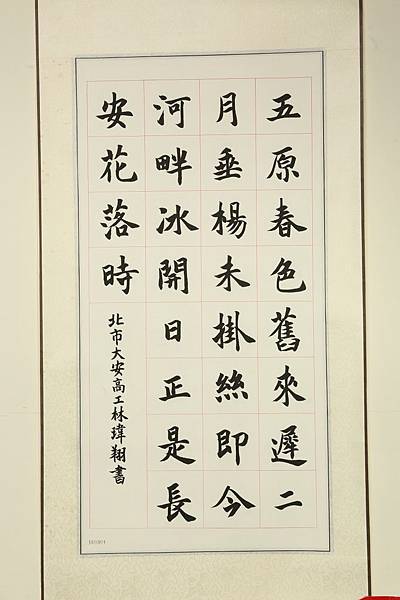 五原春色舊來遲二
月垂楊未掛絲即今
河畔冰開日正是長
安花落時
北市大安高工林瑋翔書